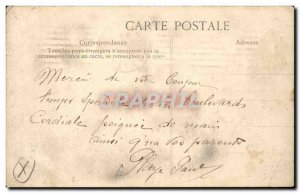 CARTE POSTALE
Correspondance
Adresse
Tous les pays étrangers n'acceptent pas la
correspondance au recto, se renseigner à la poste
Merci de votre bonjour
temps
Cordiale poignée de main
ainsi qu'à vos parents